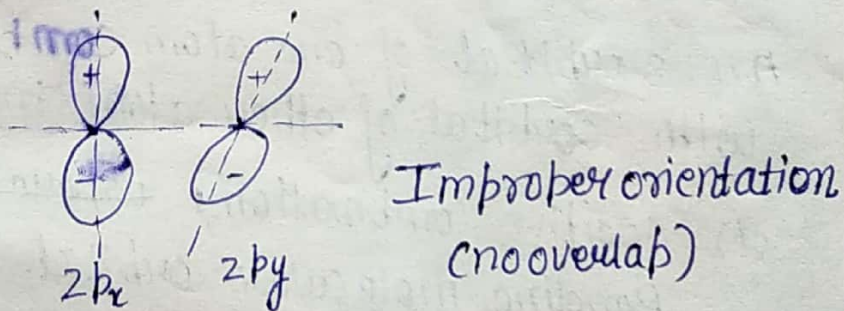 + +
- -
2px 2py
Improper orientation
(no overlap)